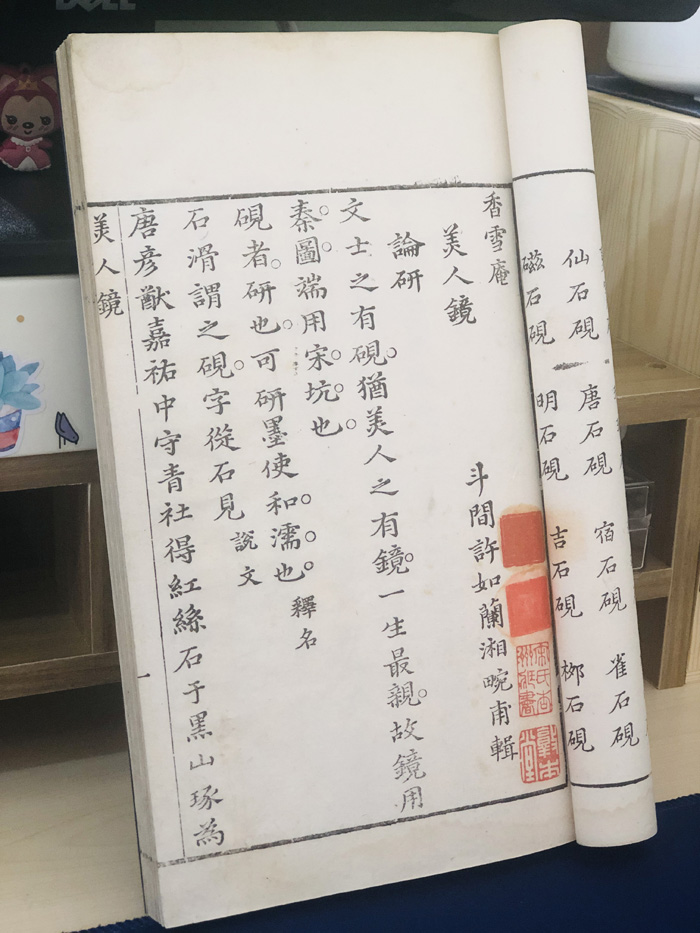 DELL
仙石硯 唐石硯 宿石硯 雀石硯
磁石硯 明石硯 吉石硯 栁石硯
香雪庵
美人鏡
斗間許如蘭湘畹甫輯
論研
文士之有硯。猶美人之有鏡。一生最親。故鏡用
秦。圖。端用宋。坑。也。
硯者。研也。可研墨使和。濡。也。釋名
石滑謂之硯。字從石見 說文
唐彥猷嘉祐中守青社得紅絲石于黑山琢為
美人鏡
一